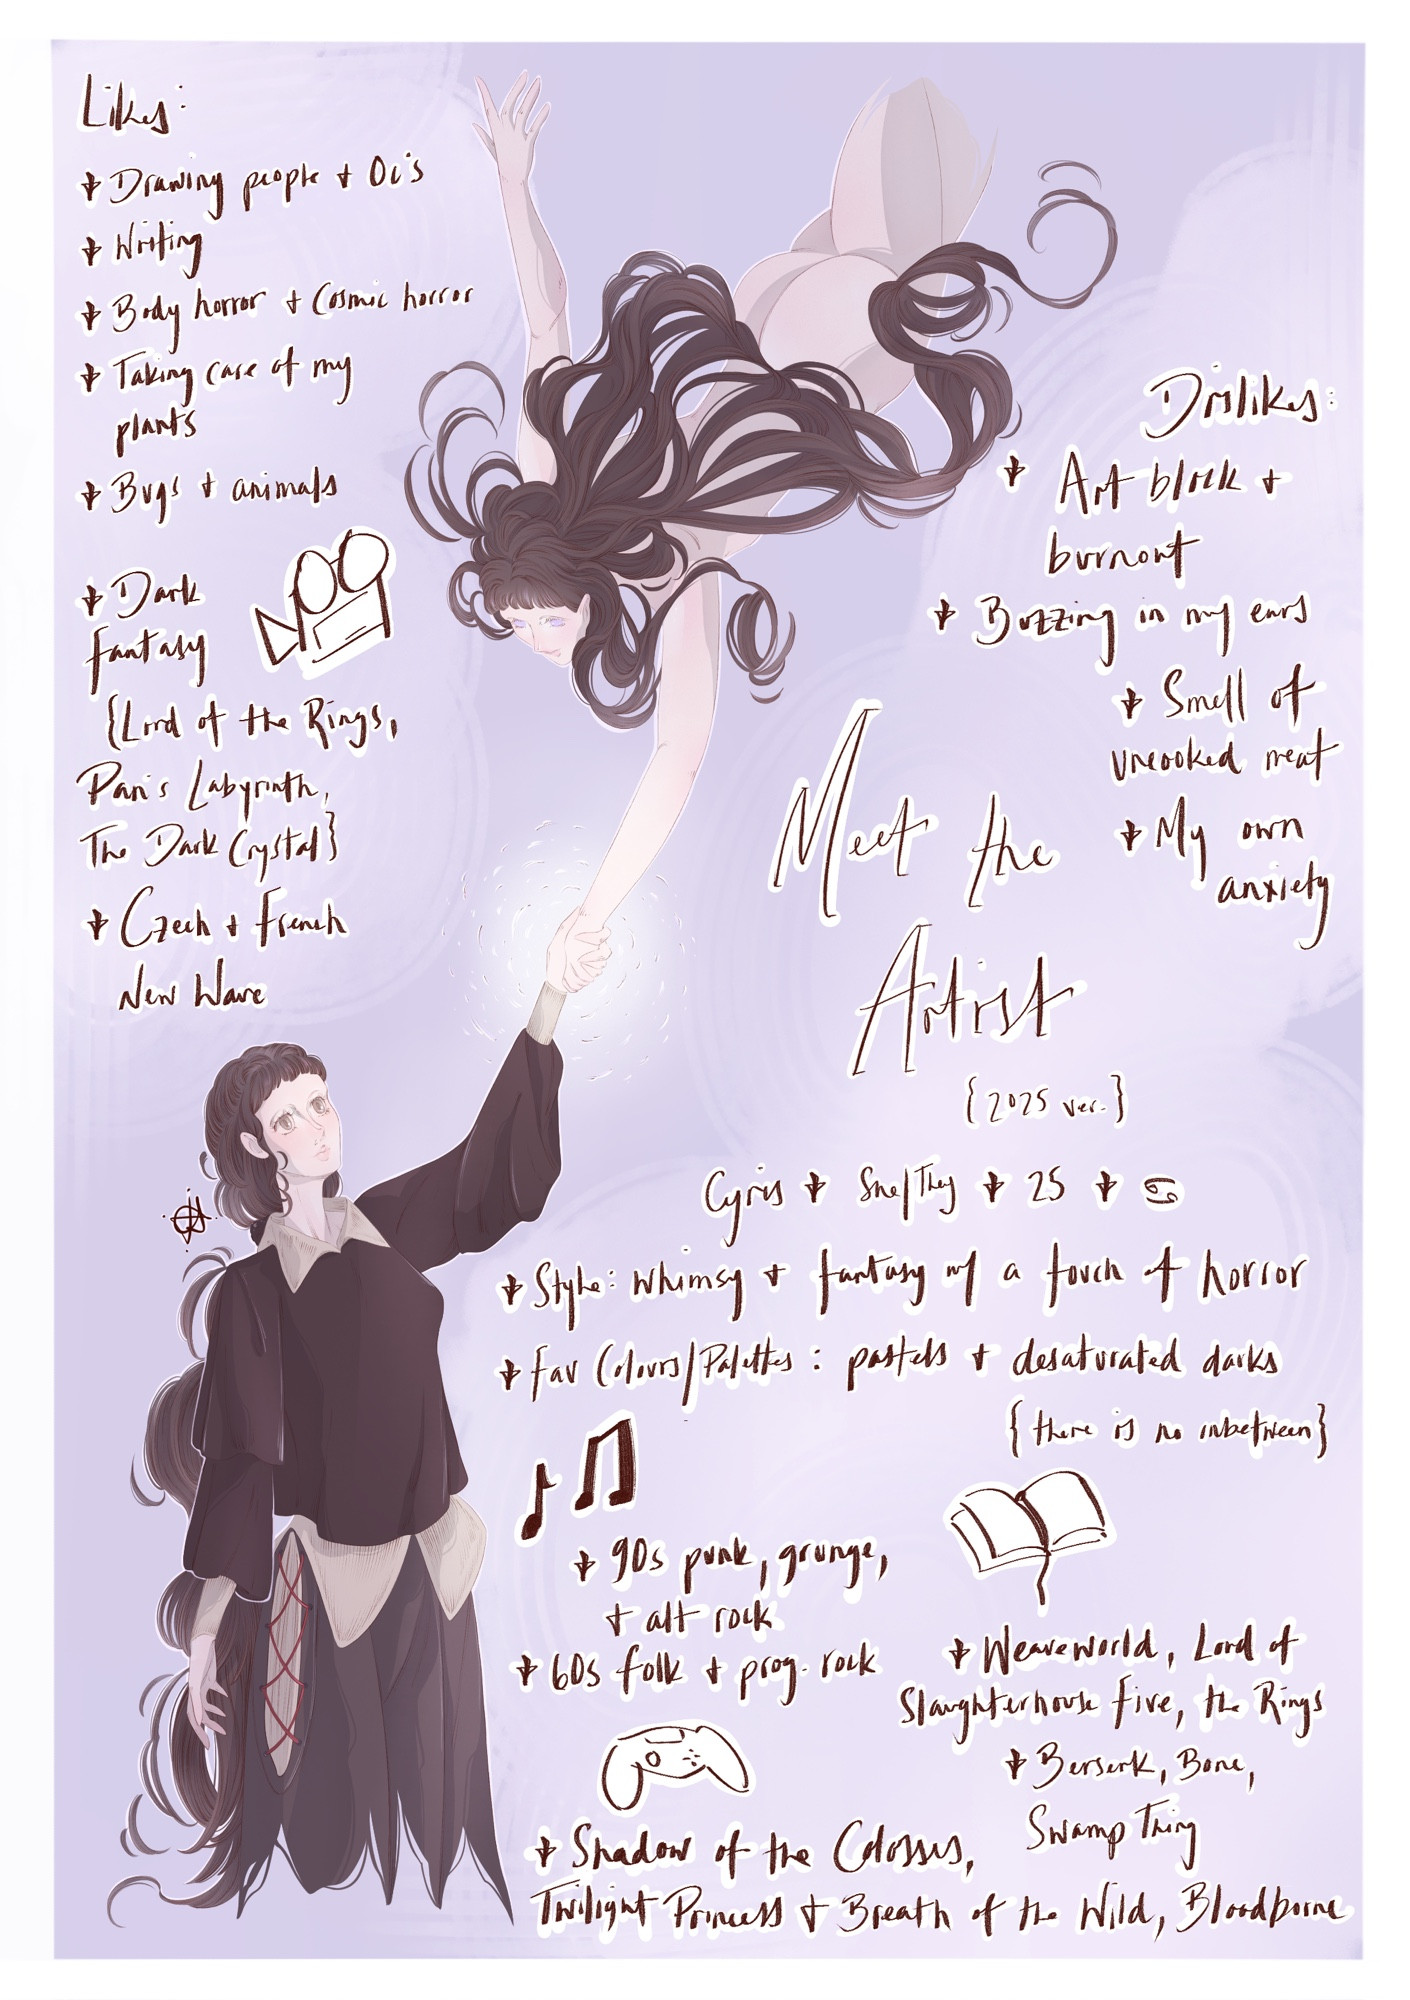 Likes:
Drawing people + Oc's
Writing
Body horror + Cosmic horror
Taking care of my
plants
Bugs + animals
Dark
fantasy
{Lord of the Rings,
Pan's Labyrinth,
The Dark Crystal}
Czech + French
New Wave
Dislikes:
Art block +
burnout
Buzzing in my ears
Smell of
uncooked meat
My own
anxiety
Meet the
Artist
{2025 ver.}
Cyris She/They 25 ♋
Style: whimsy + fantasy w/ a touch of horror
Fav Colours/Palettes: pastels + desaturated darks
{there is no inbetween}
90s punk, grunge,
+ alt rock
60s folk + prog. rock
Weaveworld, Lord of
Slaughterhouse Five, the Rings
Berserk, Bone,
Swamp Thing
Shadow of the Colossus,
Twilight Princess + Breath of the Wild, Bloodborne